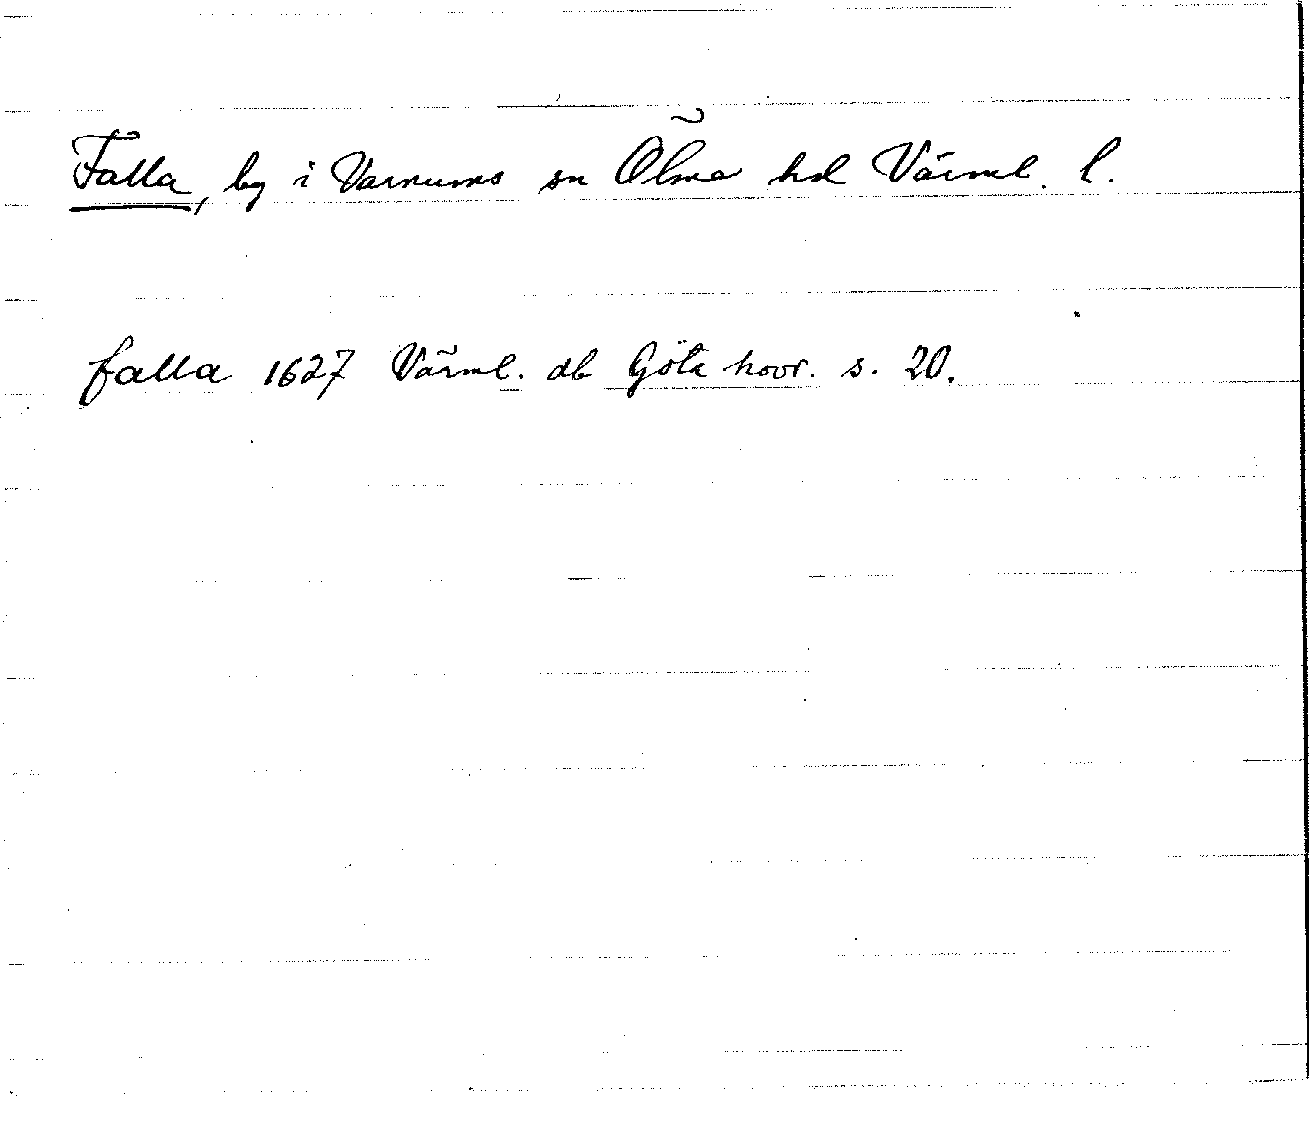 Falla, by i Varnums sn Ölme hd Värml. l.
falla 1627 Värml. db Göta hovr. s. 20.